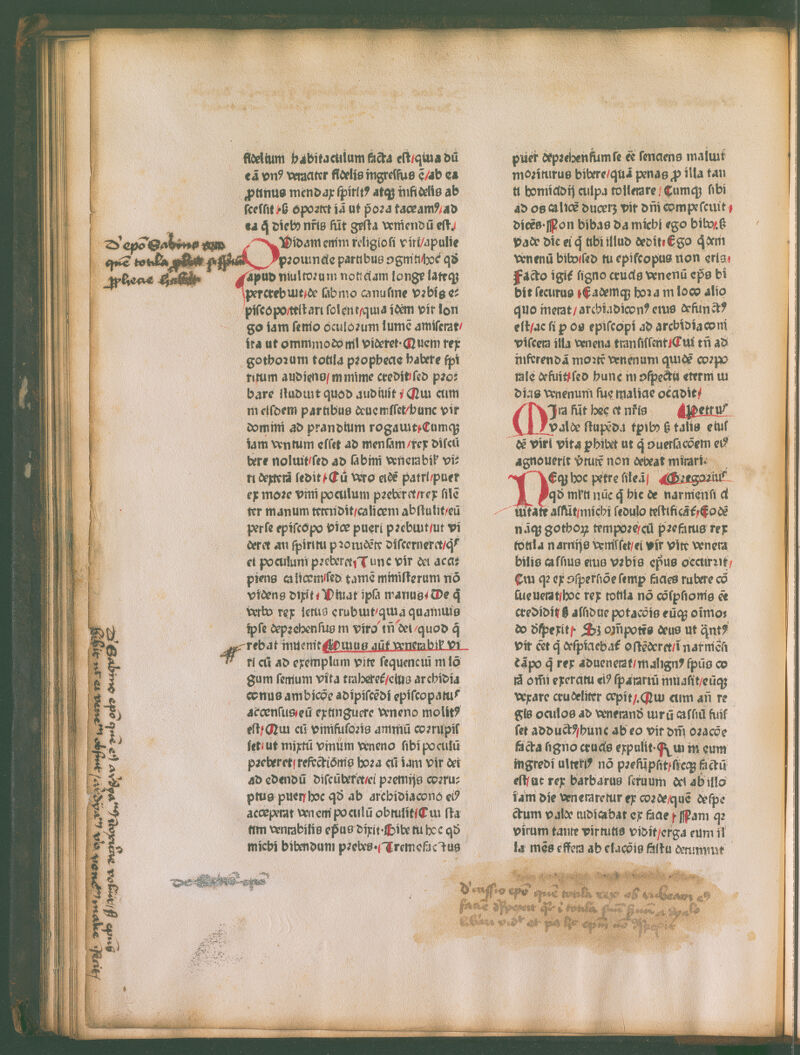 fidelium habitaculum facta est/quia dū
eā vnꝰ veraciter fidelis ingressus ē/ab ea
ꝓtinus mendax spirit⁹ atqꝫ infidelis ab
scessit
ea q̄ diebꝰ nr̄is fūt gesta veniendū est
Vidam enim religiosi viri/apulie
ꝓuincie partibus ꝯgniti/hoc qd̄
apud multorum noticiam longe lateqꝫ
percrebuit/de sabino canusine vrbis e-
piscopo/testari solent/quia idem vir lon
go iam senio oculorum lumē amiserat/
ita ut ommmodo nil videret. Quem rex
gothorum totila prophecie habere spi
ritum audiens/minime credit/sed pro-
bare studuit quod audiuit. Qui cum
in eisdem partibus deuenisset/hunc vir
domini ad prandium rogauit. Cumqꝫ
iam ventum esset ad mensam/rex discū
bere noluit/sed ad sabini venerabil' vi-
ri dexterā sedit. Cū vero eidē patri/puer
ex more vini poculum preberet/rex silē
ter manum tetendit/calicem abstulit/eū
per se episcopo vice pueri prebuit/ut vi
deret an spiritu prouidēte discerneret/qͥs
ei poculum preberet. Tunc vir dei acci-
piens calicem/sed tamē ministerum nō
videns dixit. Viuat ipsa manus. De q̄
verbo rex letus erubuit/quia quamuis
ipse deprehensus in viro tn̄ dei/quod q̄
rebat inuenit Huius aūt venerabil' vi
ri cū ad exemplum vite sequenciū in lō
gum senium vita traheret/eius archidia
conus ambicōe adipiscēdi episcopatus
accensus/eū extinguere veneno molitꝰ
est. Qui cū vinifusoris animū corrupis
set/ut mixtū vinum veneno sibi poculū
preberet/refectionis hora cū iam vir dei
ad edendū discūberet/ei premijs corru-
ptus puer/hoc qd̄ ab archidiacono eiꝰ
acceperat veneni poculū obtulit. Cui sta
tim venerabilis ep̄us dixit. Bibe tu hoc qd̄
michi bibendum prebes. Tremefactus
puer deprehensum se eē senciens maluit
moriturus bibere/quā penas ꝓ illa tan
ti homicidij culpa tollerare. Cumqꝫ sibi
ad os calicē duceret vir dn̄i compescuit
dicēs. Non bibas da michi ego bibo
vade dic ei q̄ tibi illud dedit. Ego qͥdem
venenū bibo/sed tu episcopus non eris.
Facto igit' signo crucis venenū ep̄s bi
bit securus. Eademqꝫ hora in loco alio
quo inerat/archidiaconꝰ eius defunctꝰ
est/ac si ꝑ os episcopi ad archidiaconi
viscera illa venena transissent. Cui tn̄ ad
inferendā mortē venenum quidē corpo
rale defuit/sed hunc in ꝯspectu eterni iu
dicis venenum sue malicie occidit.
Mira sūt hec et nr̄is Petrus
valde stupēda
dē viri vita ꝑhibet ut q̄ ꝯuersacōem eiꝰ
agnouerit v̄tutē non debeat mirari.
Neqꝫ hoc petre sileā Gregorius
qd̄ mlti nūc q̄ hic de narniensi ci
uitate assūt/michi sedulo testificāt'. Eodē
nāqꝫ gothoꝝ tempore/cū prefatus rex
totila narnijs venisset/ei vir vite venera
bilis cassius eius vrbis ep̄us occurrit
Cui qꝛ ex ꝯspersiōe semꝑ facies rubere cō
sueuerat/hoc rex totila nō cōspsionis eē
credidit ß assidue potacōis eūqꝫ oīmo-
do despexit. Sꝫ om̄ipotēs deus ut q̄ntꝰ
vir eēt q̄ despiciebat' ostēderet/ī narniēsi
cāpo q̄ rex aduenerat/malignꝰ sp̄us co
rā om̄i exercitu eiꝰ spatariū inuasit/eūqꝫ
vexare crudeliter cepit. Qui cum an̄ re
gis oculos ad venerand uirū cassiū fuis
set adductꝰ/hunc ab eo vir dn̄i oracōe
facta signo crucis expulit. Qui in eum
ingredi vlteriꝰ nō presūpsit/sicqꝫ factū
est/ut rex barbarus seruum dei ab illo
iam die veneraretur ex corde/quē despe
ctum valde iudicabat ex facie. Nam qꝛ
virum tante virtutis vidit/erga eum il
la mēs effera ab elacōis fastu detumuit